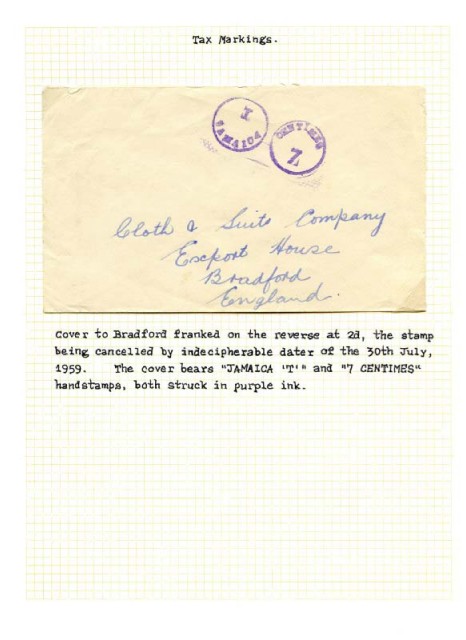 Tax Markings.
I
JAMAICA
CENTIMES
7
Cloth & Suits Company
Export House
Bradford
England.
Cover to Bradford franked on the reverse at 2d, the stamp
being cancelled by indecipherable dater of the 30th July,
1959. The cover bears "JAMAICA 'T'" and "7 CENTIMES"
handstamps, both struck in purple ink.